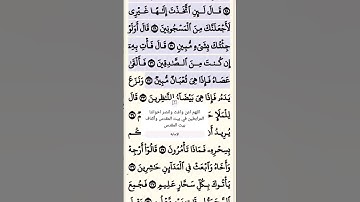 قَالَ لَئِنِ ٱتَّخَذْتَ إِلَٰهًا غَيْرِى
لَأَجْعَلَنَّكَ مِنَ ٱلْمَسْجُونِينَ قَالَ أَوَلَوْ
جِئْتُكَ بِشَىْءٍ مُّبِينٍ قَالَ فَأْتِ بِهِۦٓ
إِن كُنتَ مِنَ ٱلصَّٰدِقِينَ فَأَلْقَىٰ
عَصَاهُ فَإِذَا هِىَ ثُعْبَانٌ مُّبِينٌ وَنَزَعَ
يَدَهُۥ فَإِذَا هِىَ بَيْضَآءُ لِلنَّٰظِرِينَ قَالَ
لِلْمَلَإِ
اللهم اعن واغث وانصر اخواننا
المرابطين في بيت المقدس وأكناف
بيت المقدس
يُرِيدُ
بِسِحْرِهِۦ فَمَاذَا تَأْمُرُونَ قَالُوٓا۟ أَرْجِهْ
وَأَخَاهُ وَٱبْعَثْ فِى ٱلْمَدَآئِنِ حَٰشِرِينَ
يَأْتُوكَ بِكُلِّ سَحَّارٍ عَلِيمٍ فَجُمِعَ